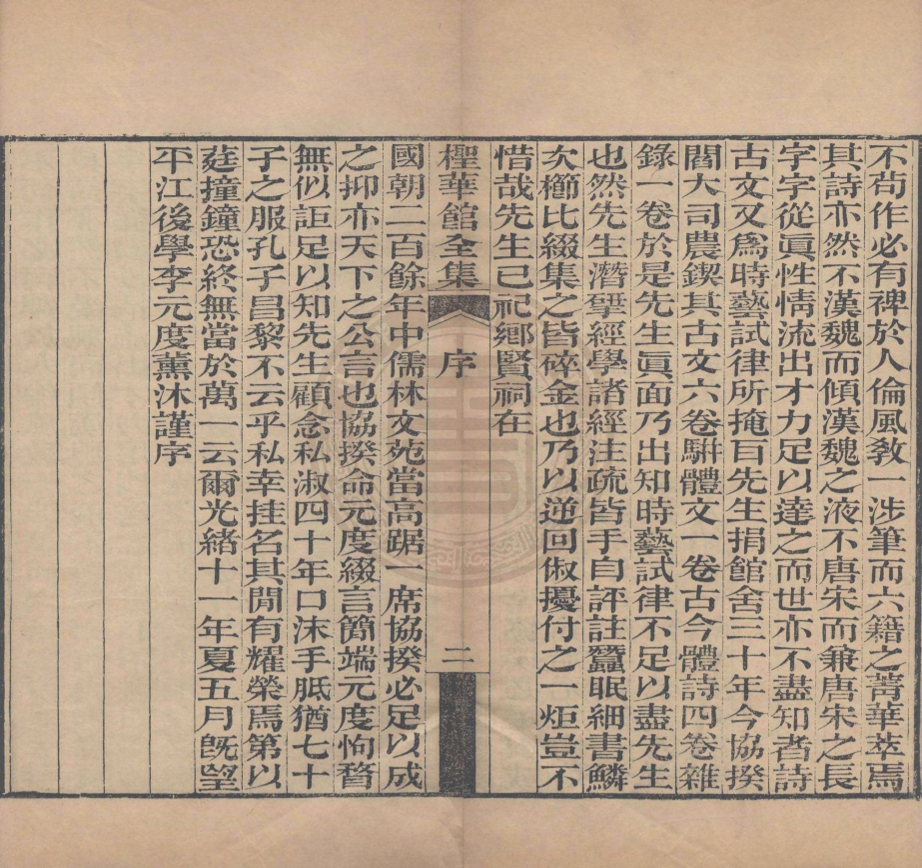 不苟作必有裨於人倫風敎一涉筆而六籍之菁華萃焉
其詩亦然不漢魏而傾漢魏之液不唐宋而兼唐宋之長
字字從眞性情流出才力足以達之而世亦不盡知者詩
古文又爲時藝試律所掩㠯先生捐館舍三十年今協揆
閻大司農鍥其古文六卷駢體文一卷古今體詩四卷雜
錄一卷於是先生眞面乃出知時藝試律不足以盡先生
也然先生潛揅經學諸經注疏皆手自評註蠶眠細書鱗
次櫛比綴集之皆碎金也乃以逆回俶擾付之一炬豈不
惜哉先生已祀鄉賢祠在
檉華館全集 序 二
國朝二百餘年中儒林文苑當高踞一席協揆必足以成
之抑亦天下之公言也協揆命元度綴言簡端元度怐瞀
無似詎足以知先生顧念私淑四十年口沫手胝猶七十
子之服孔子昌黎不云乎私幸挂名其閒有耀榮焉第以
莛撞鐘恐終無當於萬一云爾光緒十一年夏五月旣望
平江後學李元度薰沐謹序